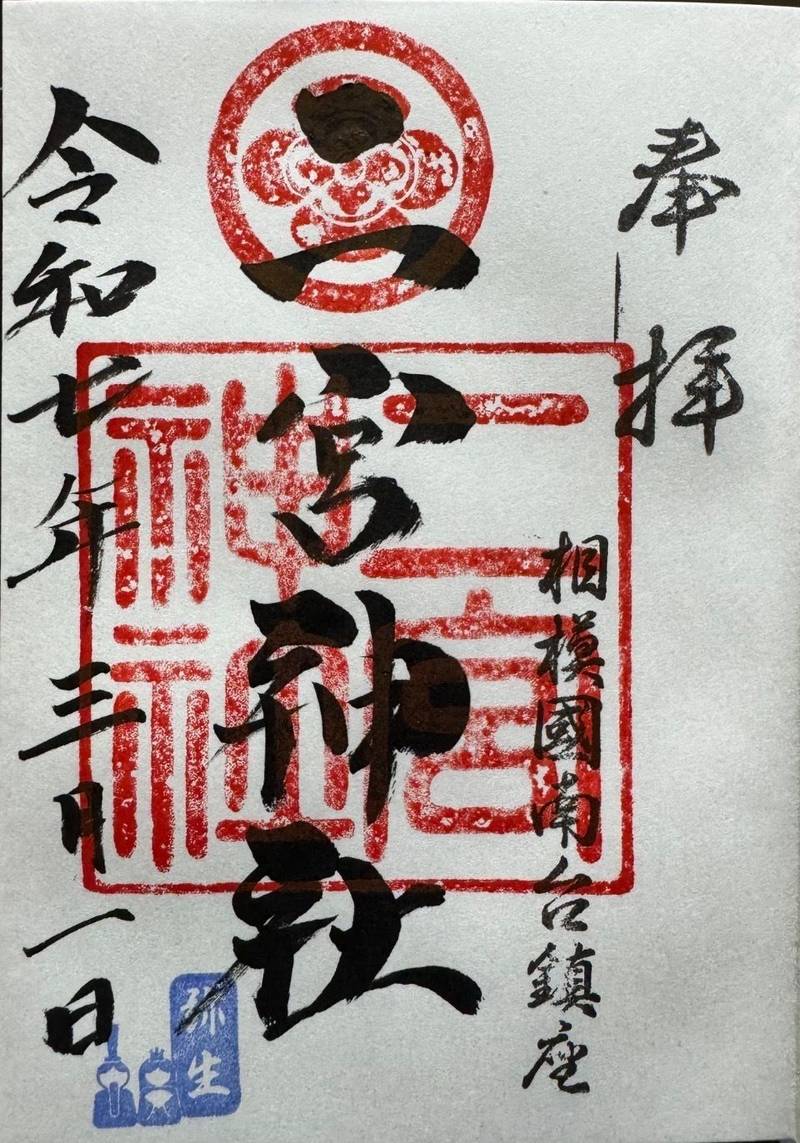 奉拝
相模國南台鎮座
二宮神社
二宮
神社
令和七年三月一日
弥生